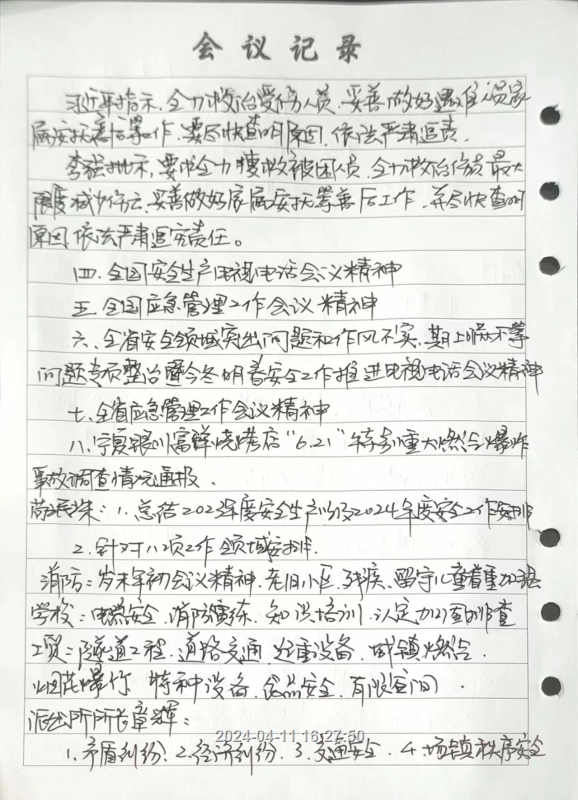 会议记录
习近平指示,全力救治受伤人员,妥善做好遇难人员家
属安抚善后等工作,要尽快查明原因,依法严肃追责.
李强批示,要求全力搜救被困人员,全力救治伤员,最大
限度减少伤亡,妥善做好家属安抚等善后工作,并尽快查明
原因依法严肃追究责任。
四.全国安全生产电视电话会议精神
五.全国应急管理工作会议精神
六.全省安全领域突出问题和作风不实、欺上瞒下等
问题专项整治暨今冬明春安全工作推进电视电话会议精神
七.全省应急管理工作会议精神
八.宁夏银川富洋烧烤店“6.21”特别重大燃气爆炸
事故调查情况通报.
1.总结2023年度安全生产以及2024年度安全工作安排
2.针对八项工作领域安排.
消防:岁末年初会议精神.老旧小区、残疾、留守儿童着重加强
学校:电器安全.消防演练.知识培训.认定加强排查
工贸:隧道工程.道路交通.起重设备.城镇燃气.
烟花爆竹 特种设备.食品安全.有限空间.
派出所所长章辉:
2024-04-11 16:27:50
1.矛盾纠纷.2.经济纠纷.3.交通安全.4.场镇秩序安全